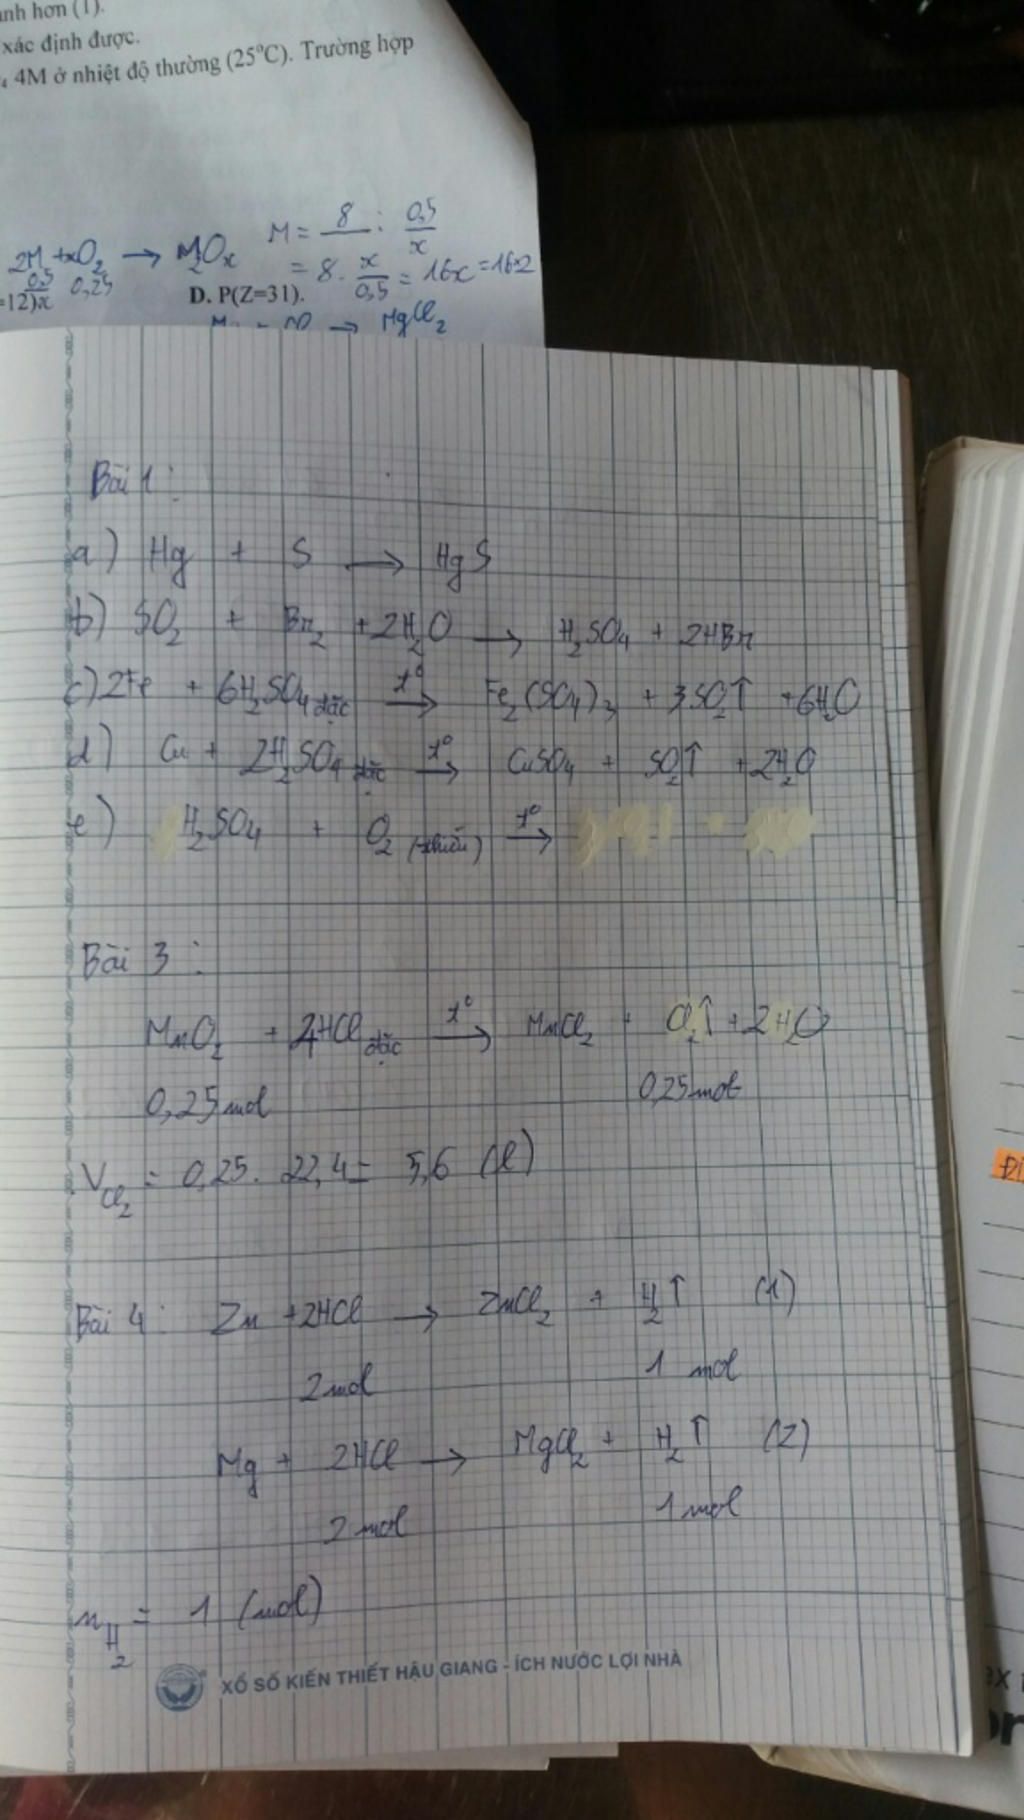 anh hơn (1).
xác định được.
₄ 4M ở nhiệt độ thường (25°C). Trường hợp
2M + xO₂ → M₂Oₓ M = 8 : 0,5/x
0,5/x 0,25 = 8 . x/0,5 = 16x = 16.2
=12) D. P(Z=31).
→ MgCl₂
Bài 1:
a) Hg + S → HgS
b) SO₂ + Br₂ + 2H₂O → H₂SO₄ + 2HBr
c) 2Fe + 6H₂SO₄ đặc t° → Fe₂(SO₄)₃ + 3SO₂↑ + 6H₂O
d) Cu + 2H₂SO₄ đặc t° → CuSO₄ + SO₂↑ + 2H₂O
e) H₂SO₄ + O₂ (thiếu) t° →
Bài 3:
MnO₂ + 4HCl đặc t° → MnCl₂ + Cl₂↑ + 2H₂O
0,25 mol 0,25 mol
V Cl₂ = 0,25. 22,4 = 5,6 (l)
Bài 4: Zn + 2HCl → ZnCl₂ + H₂↑ (1)
2 mol 1 mol
Mg + 2HCl → MgCl₂ + H₂↑ (2)
2 mol 1 mol
n H₂ = 1 (mol)
XỔ SỐ KIẾN THIẾT HẬU GIANG - ÍCH NƯỚC LỢI NHÀ